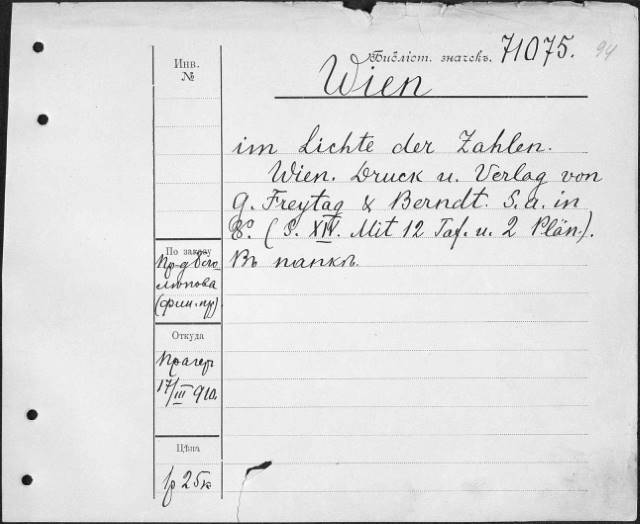 Библіот. значекъ. 71075. 94
Инв. №
Wien
im Lichte der Zahlen.
Wien. Druck u. Verlag von
G. Freytag & Berndt. S. a. in
8°. (S. XIV. Mit 12 Taf. u. 2 Plän.).
Въ папкѣ.
По заказу
(фин. пр)
Откуда
Прагеръ
17/III 910.
Цѣна
1р 25к